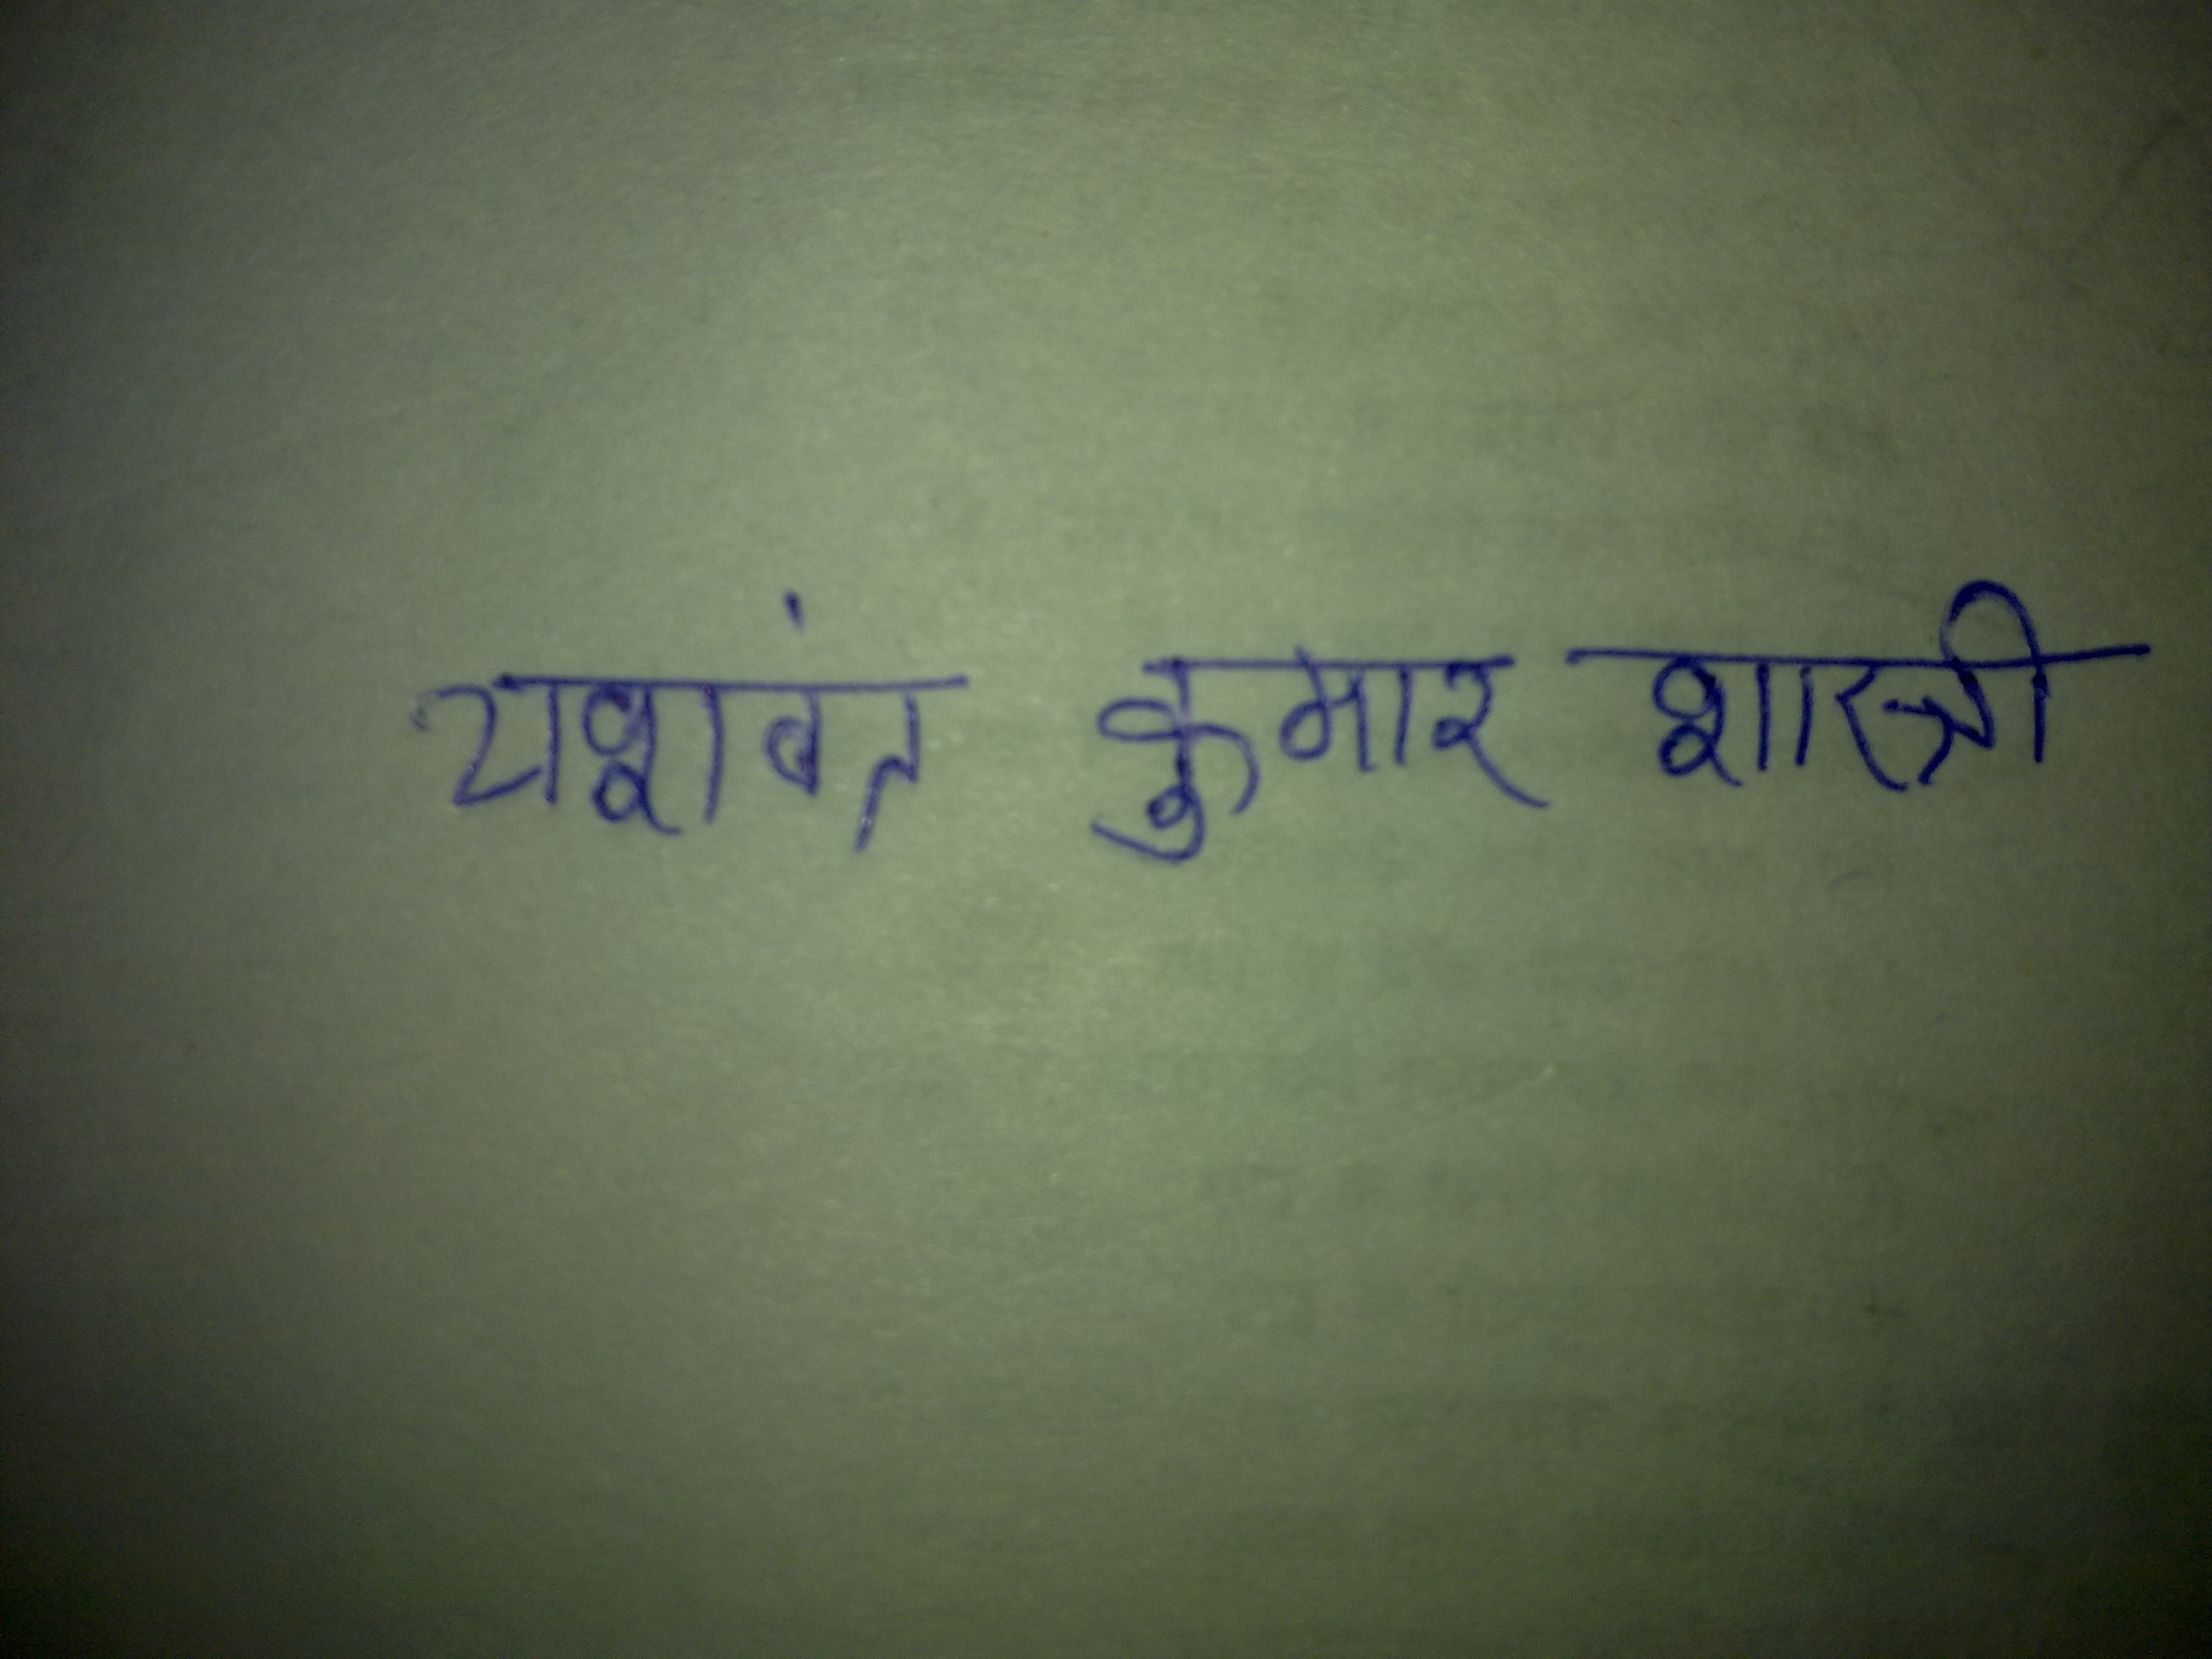 यशवंत कुमार शास्त्री